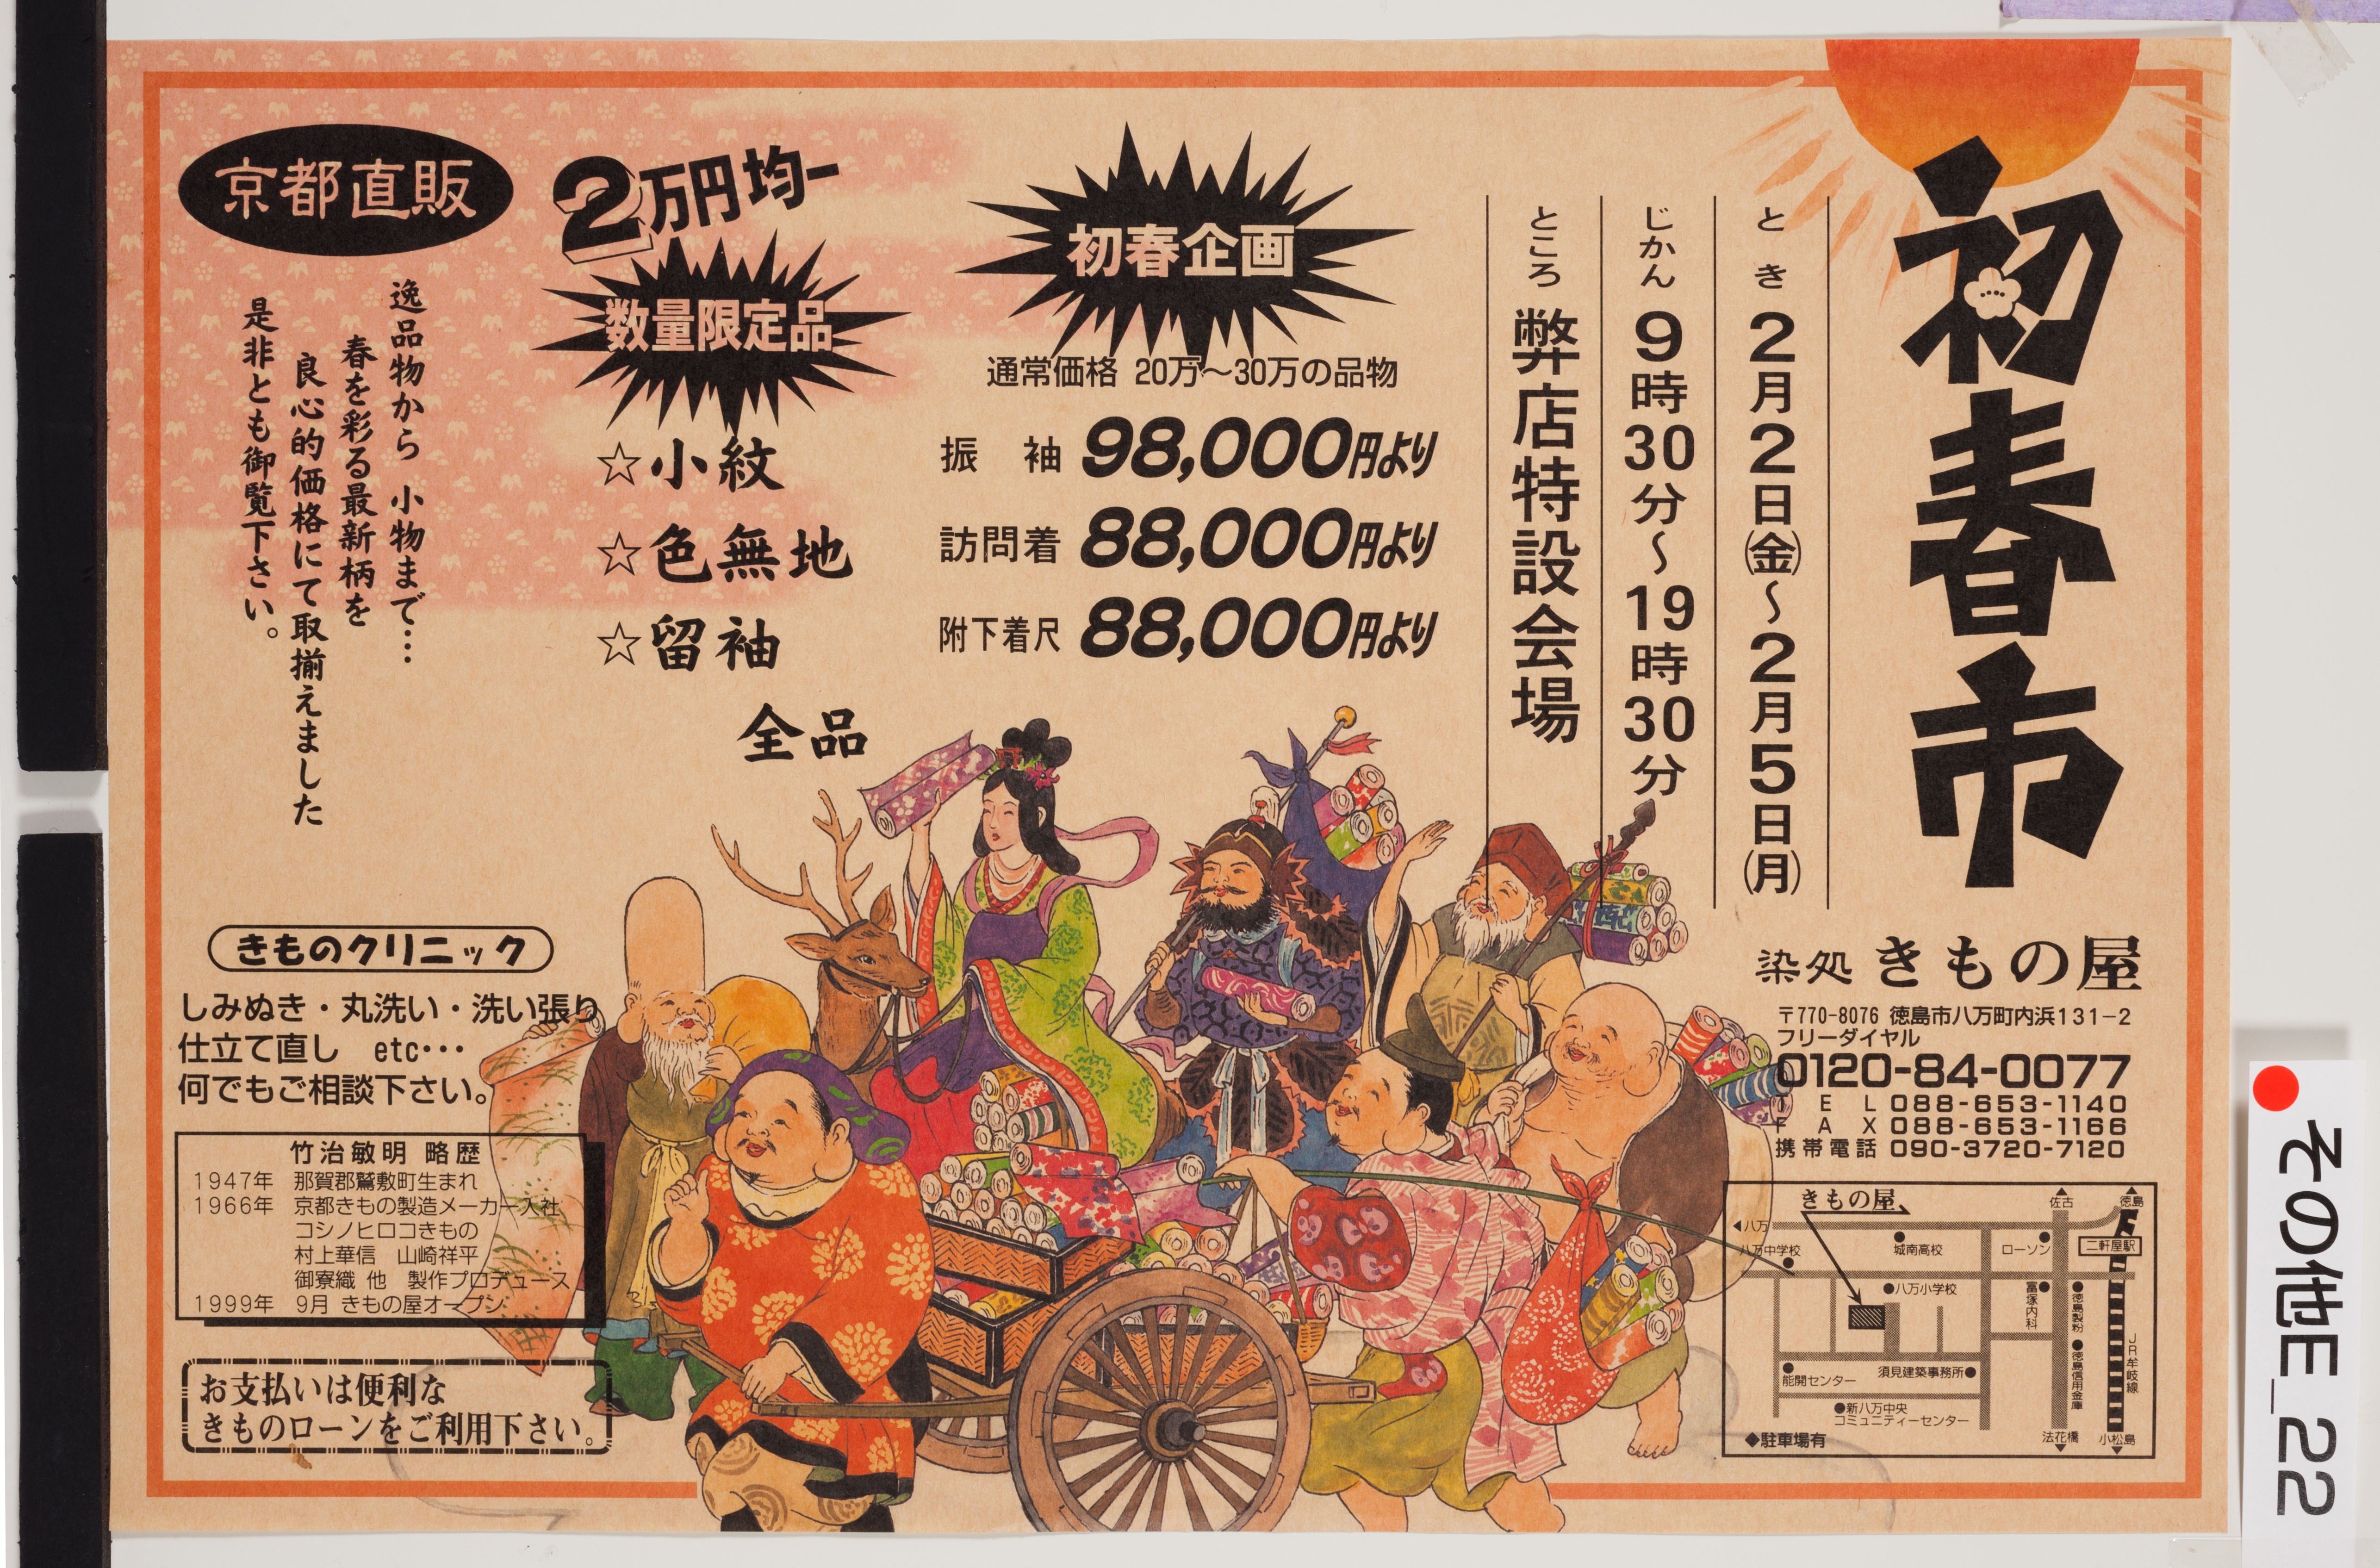 初春市
とき 2月2日㈮～2月5日㈪
じかん 9時30分～19時30分
ところ 弊店特設会場
初春企画
通常価格 20万～30万の品物
振袖 98,000円より
訪問着 88,000円より
附下着尺 88,000円より
2万円均一
数量限定品
☆小紋
☆色無地
☆留袖
全品
京都直販
逸品物から 小物まで…
春を彩る最新柄を
良心的価格にて取揃えました
是非とも御覧下さい。
きものクリニック
しみぬき・丸洗い・洗い張り
仕立て直し etc…
何でもご相談下さい。
竹治敏明 略歴
1947年 那賀郡鷲敷町生まれ
1966年 京都きもの製造メーカー入社
コシノヒロコきもの
村上華信 山崎祥平
御寮織 他 製作プロデュース
1999年 9月 きもの屋オープン
お支払いは便利な
きものローンをご利用下さい。
染処 きもの屋
〒770-8076 徳島市八万町内浜131-2
フリーダイヤル
0120-84-0077
TEL 088-653-1140
FAX 088-653-1166
携帯電話 090-3720-7120
きもの屋
佐古
徳島
八万
八万中学校
城南高校
ローソン
二軒屋駅
八万小学校
富塚内科
徳島製粉
徳島信用金庫
JR牟岐線
能開センター
須見建築事務所
新八万中央
コミュニティーセンター
◆駐車場有
法花橋
小松島
その他E_22